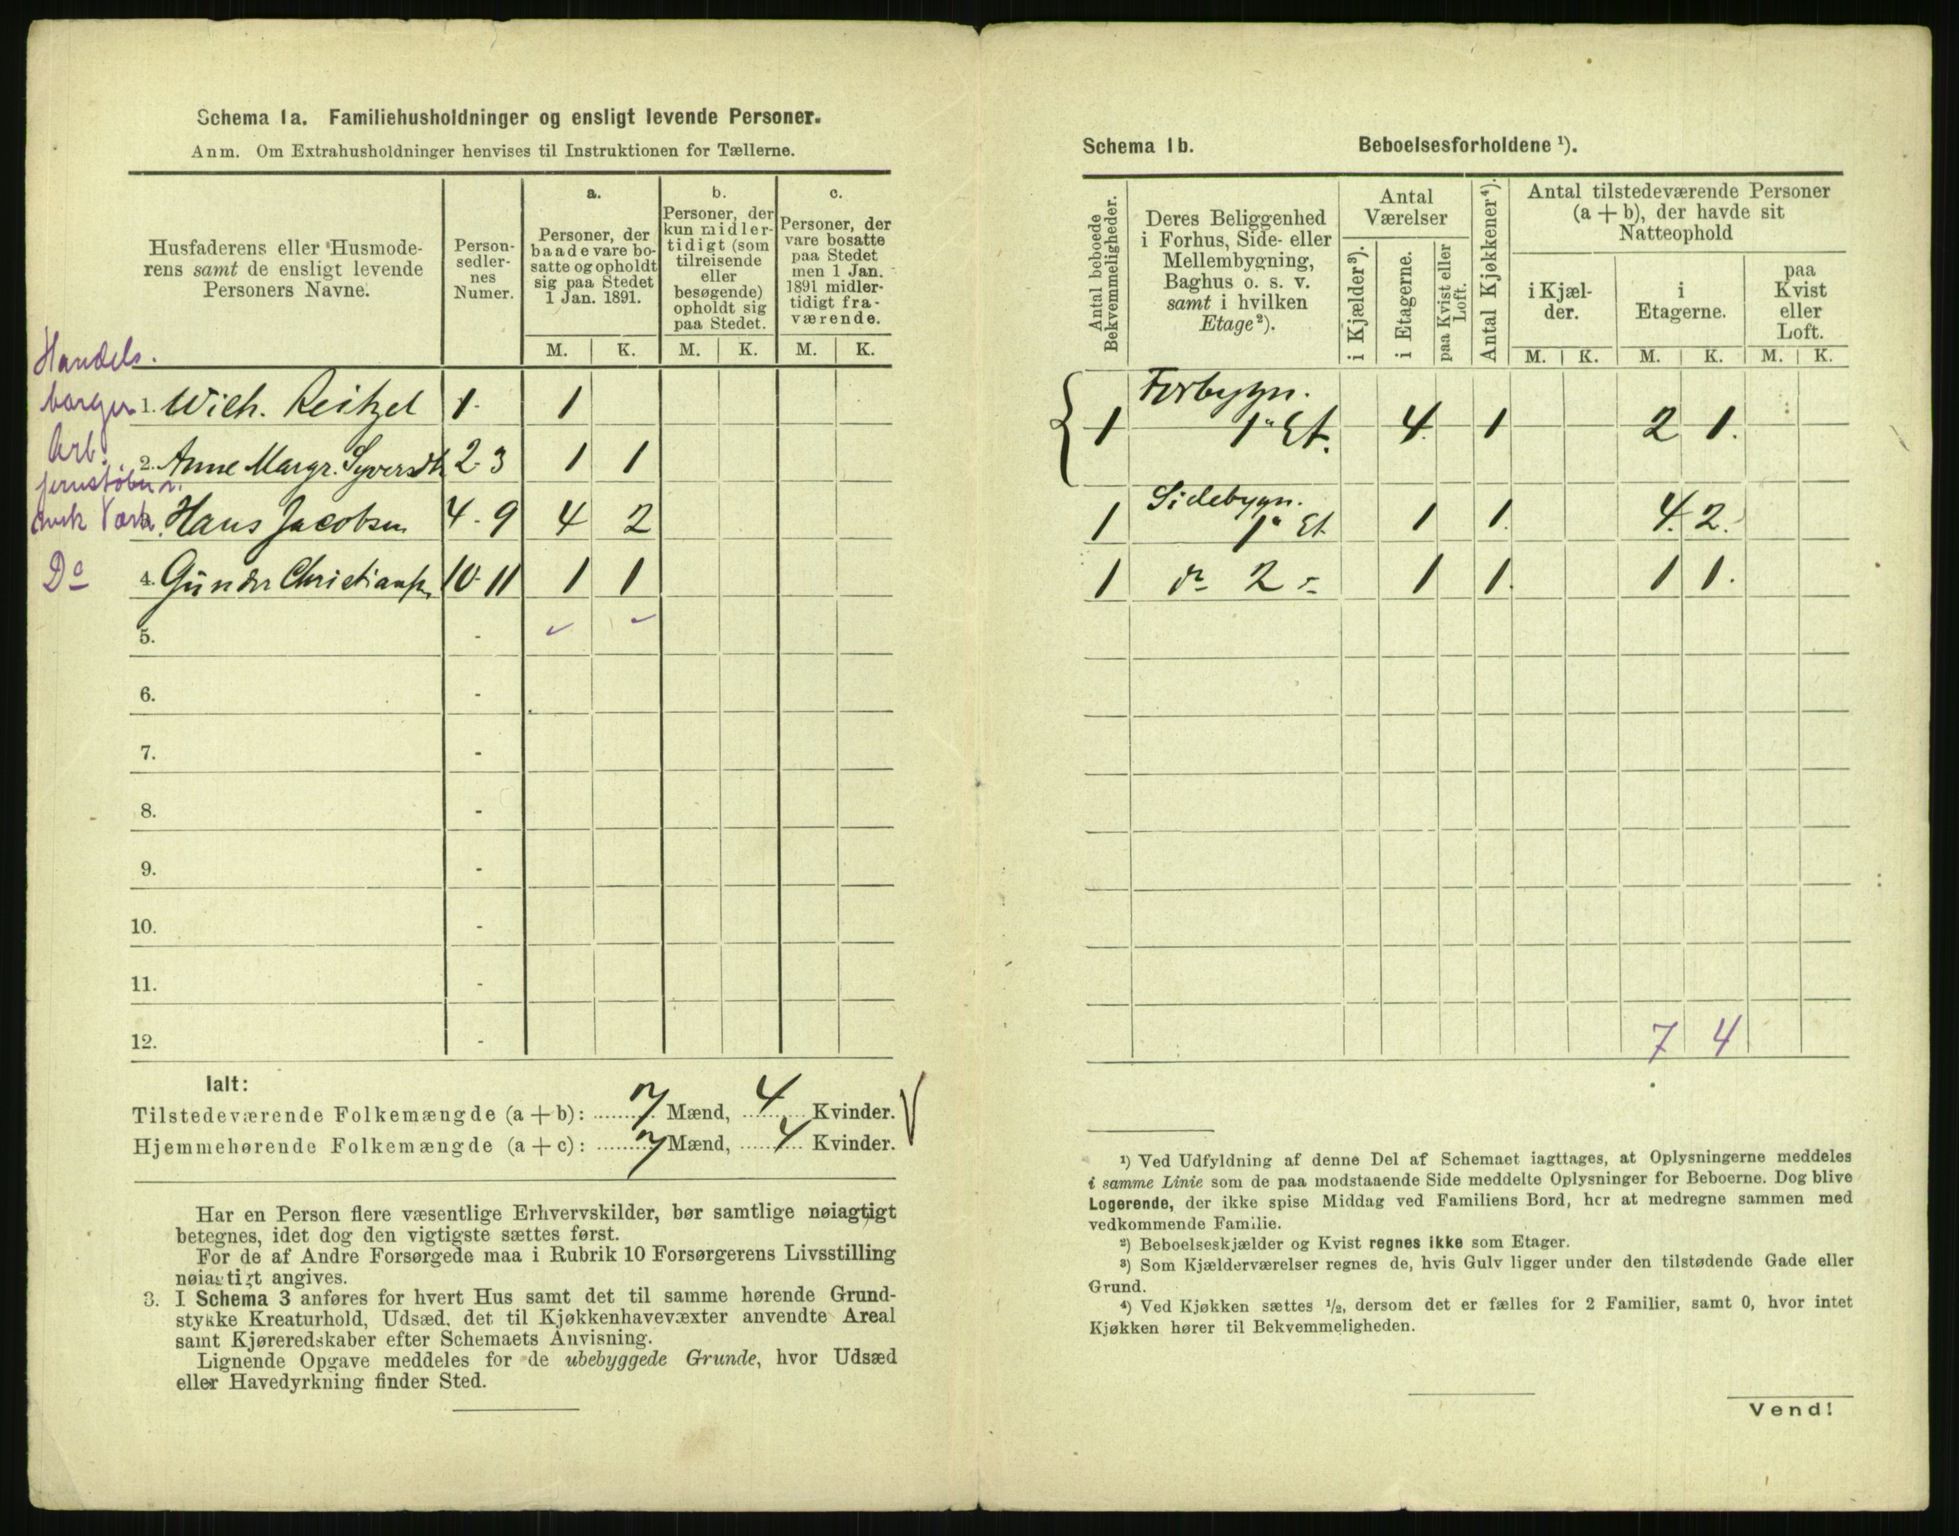 Schema 1a. Familiehusholdninger og ensligt levende Personer.
Anm. Om Extrahusholdninger henvises til Instruktionen for Tællerne.
Husfaderens eller Husmode-
rens samt de ensligt levende
Personers Navne.
Person-
sedler-
nes
Numer.
a.
Personer, der
baade vare bo-
satte og opholdt
sig paa Stedet
1 Jan. 1891.
b.
Personer, der
kun midler-
tidigt (som
tilreisende
eller
besøgende)
opholdt sig
paa Stedet.
c.
Personer, der
vare bosatte
paa Stedet
men 1 Jan.
1891 midler-
tidigt fra-
værende.
M. K. M. K. M. K.
Handels.
borger 1. Wilh. Reitzel 1. 1
Arb. 2. Anne Margr. Syversdtr 2-3 1 1
jernstøber
Værk. Hans Jacobsen 4-9 4 2
Do 4. Gunder Christiansen 10-11 1 1
5. -
6. -
7. -
8. -
9. -
10. -
11. -
12. -
Ialt:
Tilstedeværende Folkemængde (a + b): 7 Mænd, 4 Kvinder.
Hjemmehørende Folkemængde (a + c): 7 Mænd, 4 Kvinder.
Har en Person flere væsentlige Erhvervskilder, bør samtlige nøiagtigt
betegnes, idet dog den vigtigste sættes først.
For de af Andre Forsørgede maa i Rubrik 10 Forsørgerens Livsstilling
nøiagtigt angives.
3. I Schema 3 anføres for hvert Hus samt det til samme hørende Grund-
stykke Kreaturhold, Udsæd, det til Kjøkkenhavevæxter anvendte Areal
samt Kjøreredskaber efter Schemaets Anvisning.
Lignende Opgave meddeles for de ubebyggede Grunde, hvor Udsæd
eller Havedyrkning finder Sted.
Schema 1b. Beboelsesforholdene ¹).
Antal beboede
Bekvemmeligheder.
Deres Beliggenhed
i Forhus, Side- eller
Mellembygning,
Baghus o. s. v.
samt i hvilken
Etage ²).
Antal
Værelser
i Kjælder ³).
i Etagerne.
paa Kvist eller
Loft.
Antal Kjøkkener ⁴).
Antal tilstedeværende Personer
(a + b), der havde sit
Natteophold
i Kjæl-
der.
i
Etagerne.
paa
Kvist
eller
Loft.
M. K. M. K. M. K.
Forbygn.
1 1ª Et. 4. 1 2 1.
Sidebygn.
1 1ª Et 1 1. 4. 2.
1 do 2 - 1 1. 1 1.
7 4
¹) Ved Udfyldning af denne Del af Schemaet iagttages, at Oplysningerne meddeles
i samme Linie som de paa modstaaende Side meddelte Oplysninger for Beboerne. Dog blive
Logerende, der ikke spise Middag ved Familiens Bord, her at medregne sammen med
vedkommende Familie.
²) Beboelseskjælder og Kvist regnes ikke som Etager.
³) Som Kjælderværelser regnes de, hvis Gulv ligger under den tilstødende Gade eller
Grund.
⁴) Ved Kjøkken sættes ½, dersom det er fælles for 2 Familier, samt 0, hvor intet
Kjøkken hører til Bekvemmeligheden.
Vend!